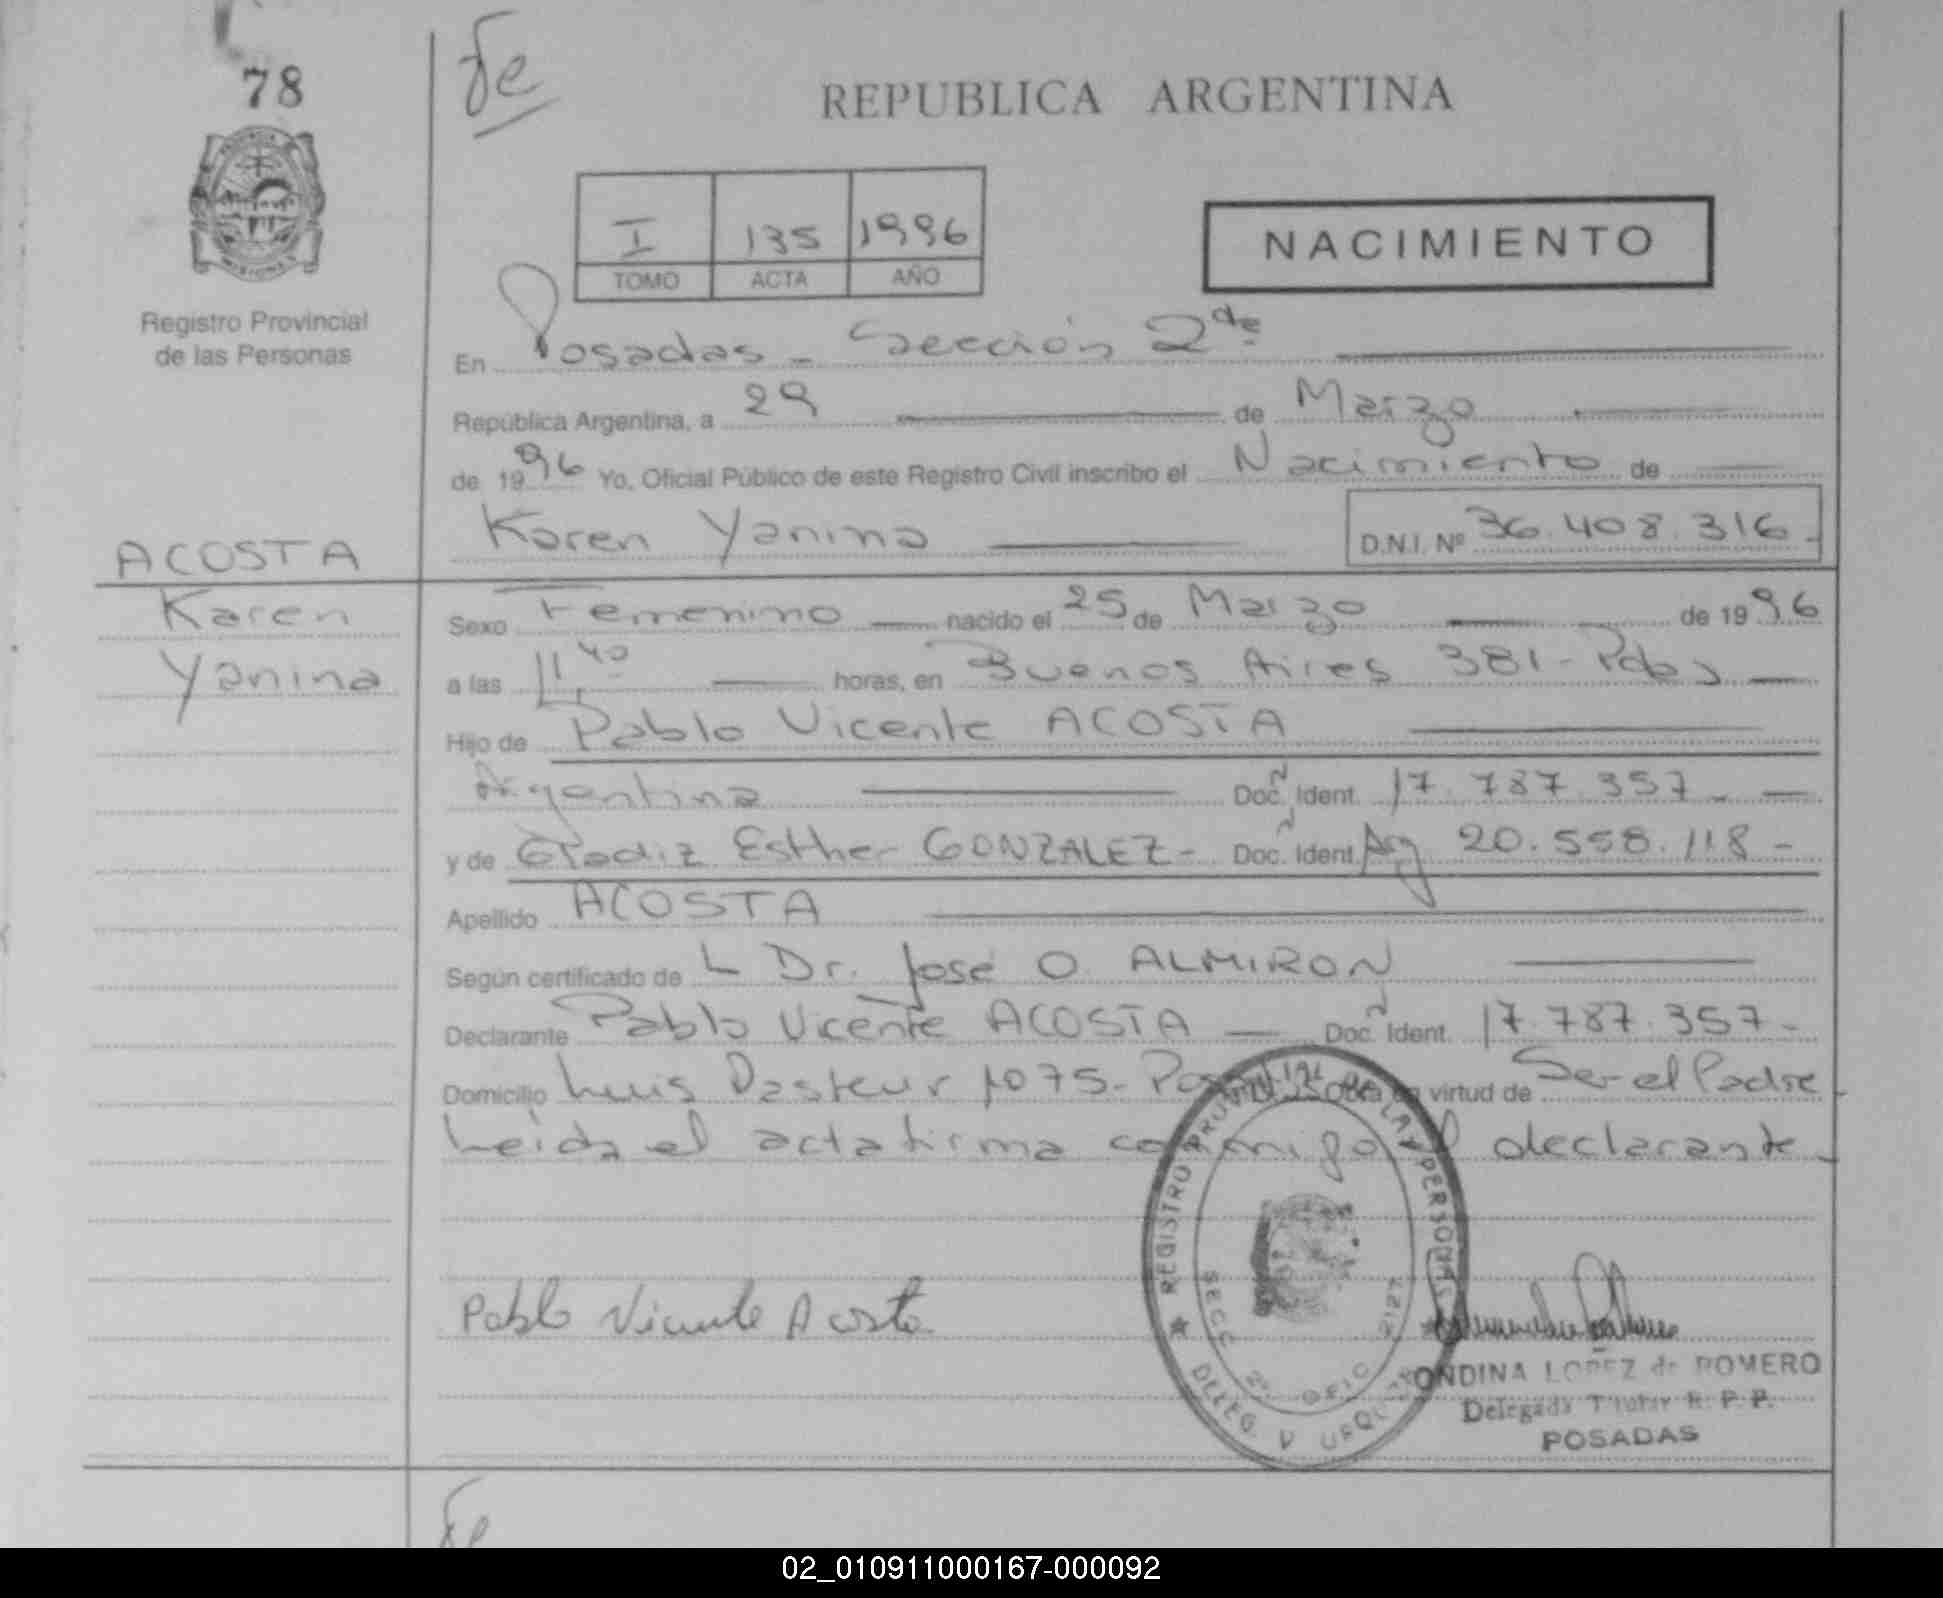 78
fe
REPUBLICA ARGENTINA
I 135 1996
TOMO ACTA AÑO
NACIMIENTO
Registro Provincial
de las Personas
En Posadas - Sección 2da
República Argentina, a 29 de Marzo
de 1996 Yo, Oficial Público de este Registro Civil inscribo el Nacimiento de
Karen Yanina D.N.I. Nº 36.408.316-
ACOSTA
Karen
Yanina
Sexo Femenino nacido el 25 de Marzo de 1996
a las 11,40 horas, en Buenos Aires 381 - Pdas
Hijo de Pablo Vicente ACOSTA
Argentina Doc. Ident. 17.787.357-
y de Gladiz Esther GONZALEZ - Doc. Ident. Arg 20.558.118-
Apellido ACOSTA
Según certificado de L Dr. José O. ALMIRON
Declarante Pablo Vicente ACOSTA Doc. Ident. 17.787.357-
Domicilio Luis Pasteur 1075- Obra en virtud de Ser el Padre
Leída el acta firma conmigo el declarante-
REGISTRO PROVINCIAL DE LAS PERSONAS
SECC 2º OFIC 2127
DELEG. V URQUIZA
Pablo Vicente Acosta
ONDINA LOPEZ de ROMERO
Delegada Titular R. P. P.
POSADAS
fe
02_010911000167-000092